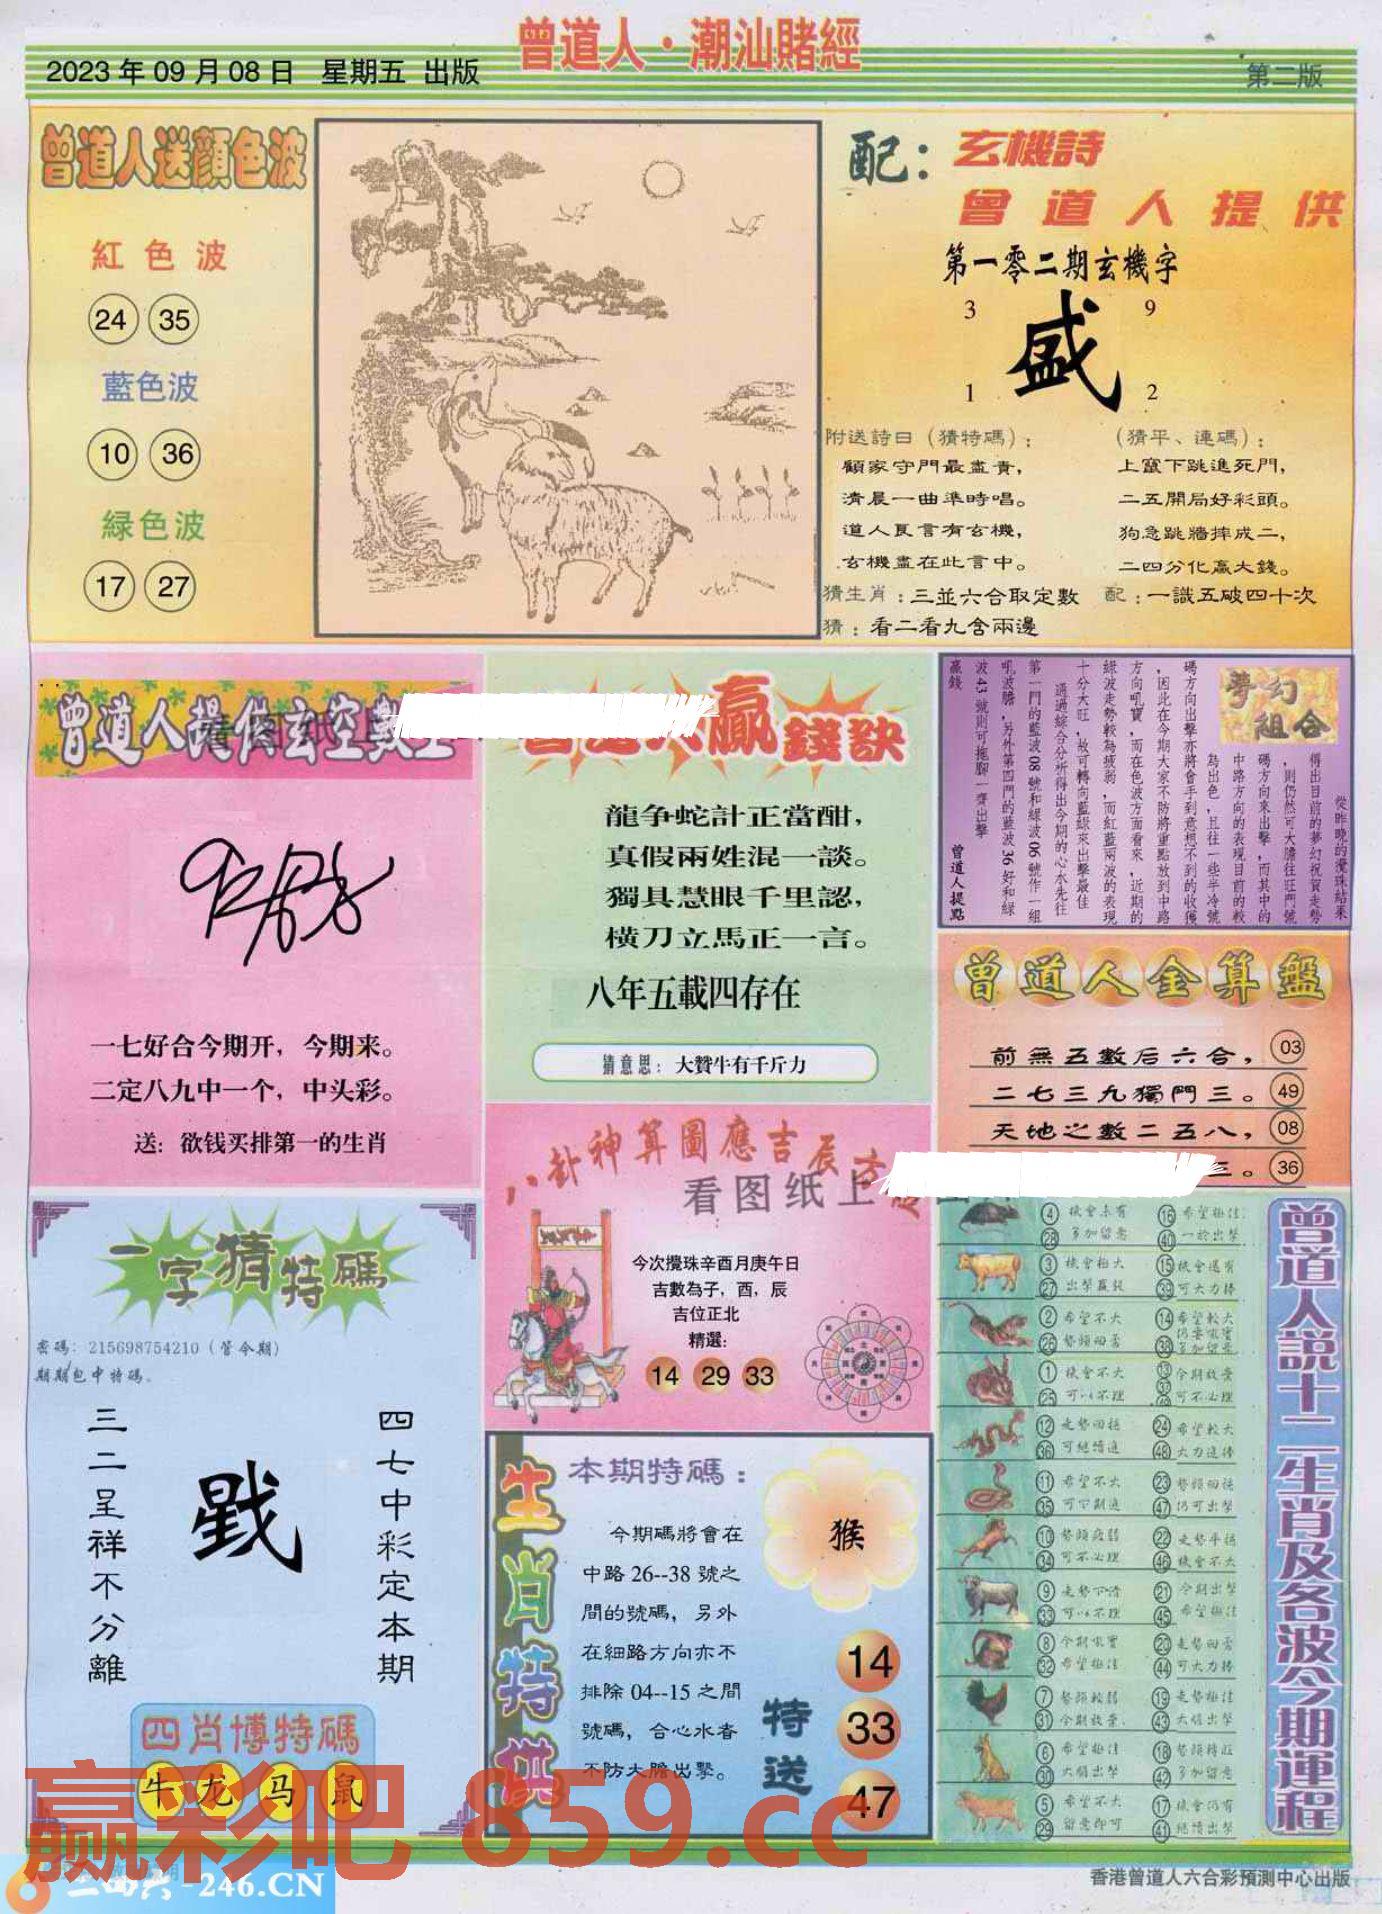 曾道人·潮汕賭經
2023 年 09 月 08 日 星期五 出版
第二版
曾道人送顏色波
紅色波
24 35
藍色波
10 36
緑色波
17 27
配：玄機詩
曾道人提供
第一零二期玄機字
3 9
盛
1 2
附送詩曰（猜特碼）：
顧家守門最盡責，
清晨一曲準時唱。
道人良言有玄機，
玄機盡在此言中。
猜生肖：三並六合取定數
猜：看二看九含兩邊
（猜平、連碼）：
上竄下跳進死門，
二五開局好彩頭。
狗急跳牆摔成二，
二四分化贏大錢。
配：一識五破四十次
曾道人提供玄空數
一七好合今期开，今期来。
二定八九中一个，中头彩。
送：欲钱买排第一的生肖
贏錢訣
龍争蛇計正當酣，
真假兩姓混一談。
獨具慧眼千里認，
橫刀立馬正一言。
八年五載四存在
猜意思：大贊牛有千斤力
夢幻組合
從昨晚的攪珠結果
得出目前的夢幻祝賀走勢
，則仍然可大膽往旺門號
碼方向來出擊，而其中的
中路方向的表現目前的較
為出色，且往一些半冷號
碼方向出擊亦將會手到意想不到的收獲
，因此在今期大家不防將重點放到中路
方向吼寶，而在色波方面看來，近期的
綠波走勢較為疲弱，而紅藍兩波的表現
十分大旺，故可轉向藍綠來出擊最佳
通過綜合分析得出今期的心水先往
第一門的藍波08號和綠波06號作一組
吼波膽，另外第四門的藍波36好和綠
波43號則可拖腳一齊出擊
贏錢
曾道人提點
曾道人金算盤
前無五數后六合， 03
二七三九獨門三。 49
天地之數二五八， 08
三。 36
八卦神算圖應吉辰方
看图纸上
今次攪珠辛酉月庚午日
吉數為子，酉，辰
吉位正北
精選：
14 29 33
一字猜特碼
密碼：215698754210（管今期）
期期包中特碼。
四七中彩定本期
戥
三二呈祥不分離
四肖博特碼
牛 龙 马 鼠
生肖特供
本期特碼：
今期碼將會在
中路 26--38 號之
間的號碼，另外
在細路方向亦不
排除 04--15 之間
號碼，合心水者
不防大膽出擊。
猴
特送
14
33
47
曾道人説十二生肖及各波今期運程
4 機會未有 16 希望極佳
28 多加留意 40 一於出擊
3 機會極大 15 機會還有
27 出擊贏錢 39 可大力捧
2 希望不大 14 希望較大
26 勢頭回落 38 多加留意
1 機會不大 13 今期放棄
25 可以不理 37 可不必理
12 走勢回穩 24 希望較大
36 可繼續追 48 大力追捧
11 希望不大 23 勢頭回穩
35 可下期追 47 仍可出擊
10 勢頭疲弱 22 走勢平穩
34 可不必理 46 機會不大
9 走勢下滑 21 今期出擊
33 可以不理 45 希望極佳
8 今期吼寶 20 走勢回落
32 希望極佳 44 可大力捧
7 勢頭較弱 19 走勢極佳
31 今期放棄 43 大膽出擊
6 希望極佳 18 勢頭轉旺
30 大膽出擊 42 多加留意
5 希望不大 17 機會仍有
29 留意即可 41 繼續出擊
赢彩吧 859.cc
二四六 - 246.CN
香港曾道人六合彩預測中心出版